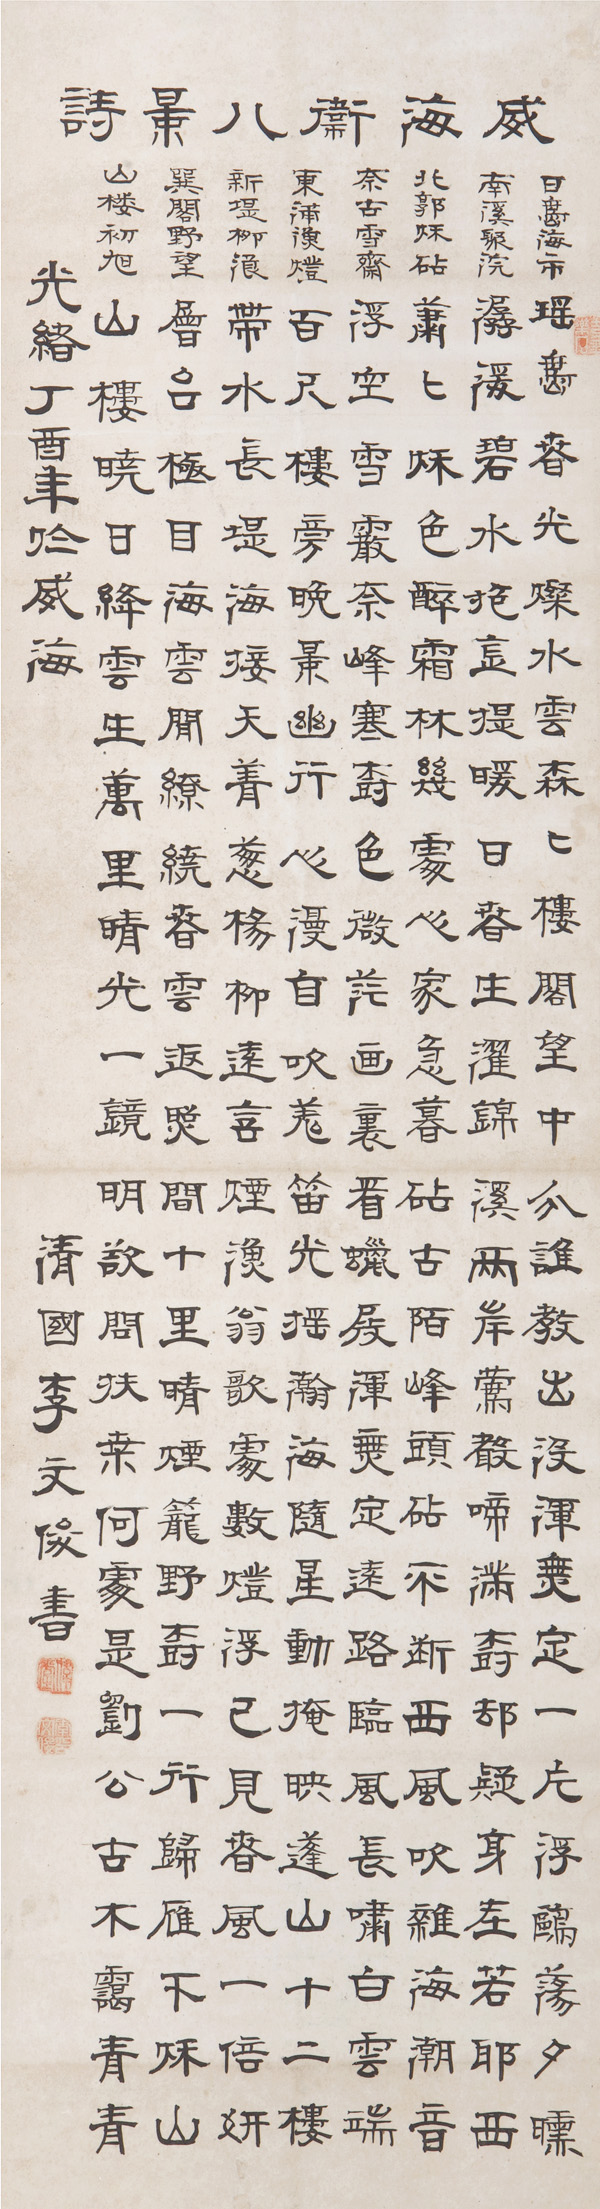 威海衞八景詩
日島海市 瑶島春光燦水雲森〻樓閣望中分誰教出沒渾無定一片浮鷗蕩夕曛
南溪聚浣 潺湲碧水抱堤暖日春生濯錦溪兩岸鶯聲啼滿樹却疑身在若耶西
北郭秌砧 蕭〻秌色醉霜林幾處人家急暮砧古陌峰頭砧不斷西風吹雜海潮音
奈古雪齋 浮空雪霰奈峰寒樹色微茫画裏看蠟屐渾無定遠路臨風長嘯白雲端
東浦漁燈 百尺樓旁晩景幽行人漫自吹羌笛光揺瀚海隨星動掩映蓬山十二樓
新堤柳浪 帶水長堤海接天菁葱楊柳遠含煙漁翁歌處數燈浮已見春風一倍妍
巽閣野望 層台極目海雲開繚繞春雲返照間十里晴煙籠野樹一行歸雁下秌山
山楼初旭 山樓曉日絳雲生萬里晴光一鏡明欲問扶桑何處是劉公古木靄青青
光緒丁酉年於威海 清國李文俊書